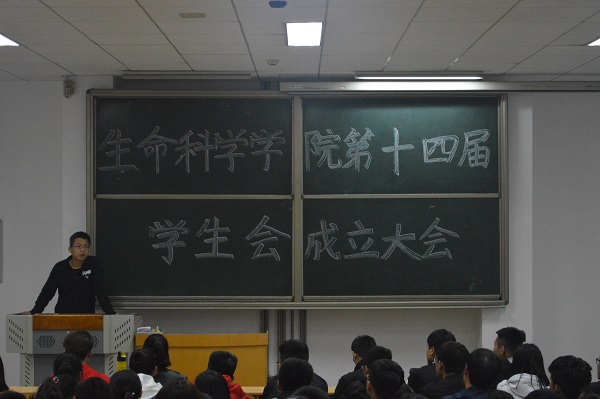 生命科学学院第十四届
学生会成立大会